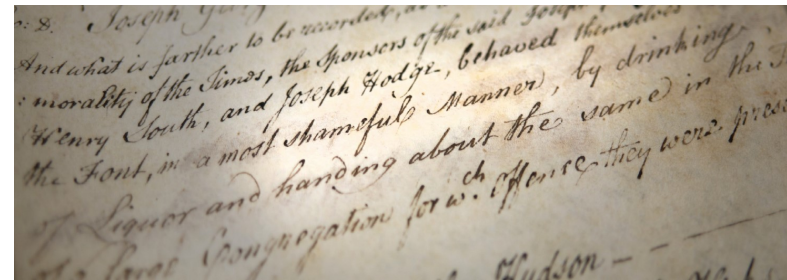 : 8. Joseph
And what is farther to be recorded, as
: morality of the Times, the Sponsors of the said Joseph
Henry South, and Joseph Hodge, behaved themselves
the Font, in a most shameful Manner, by drinking
of Liquor and handing about the same in the
of a large Congregation for wch. Offence they were prese
Hudson —